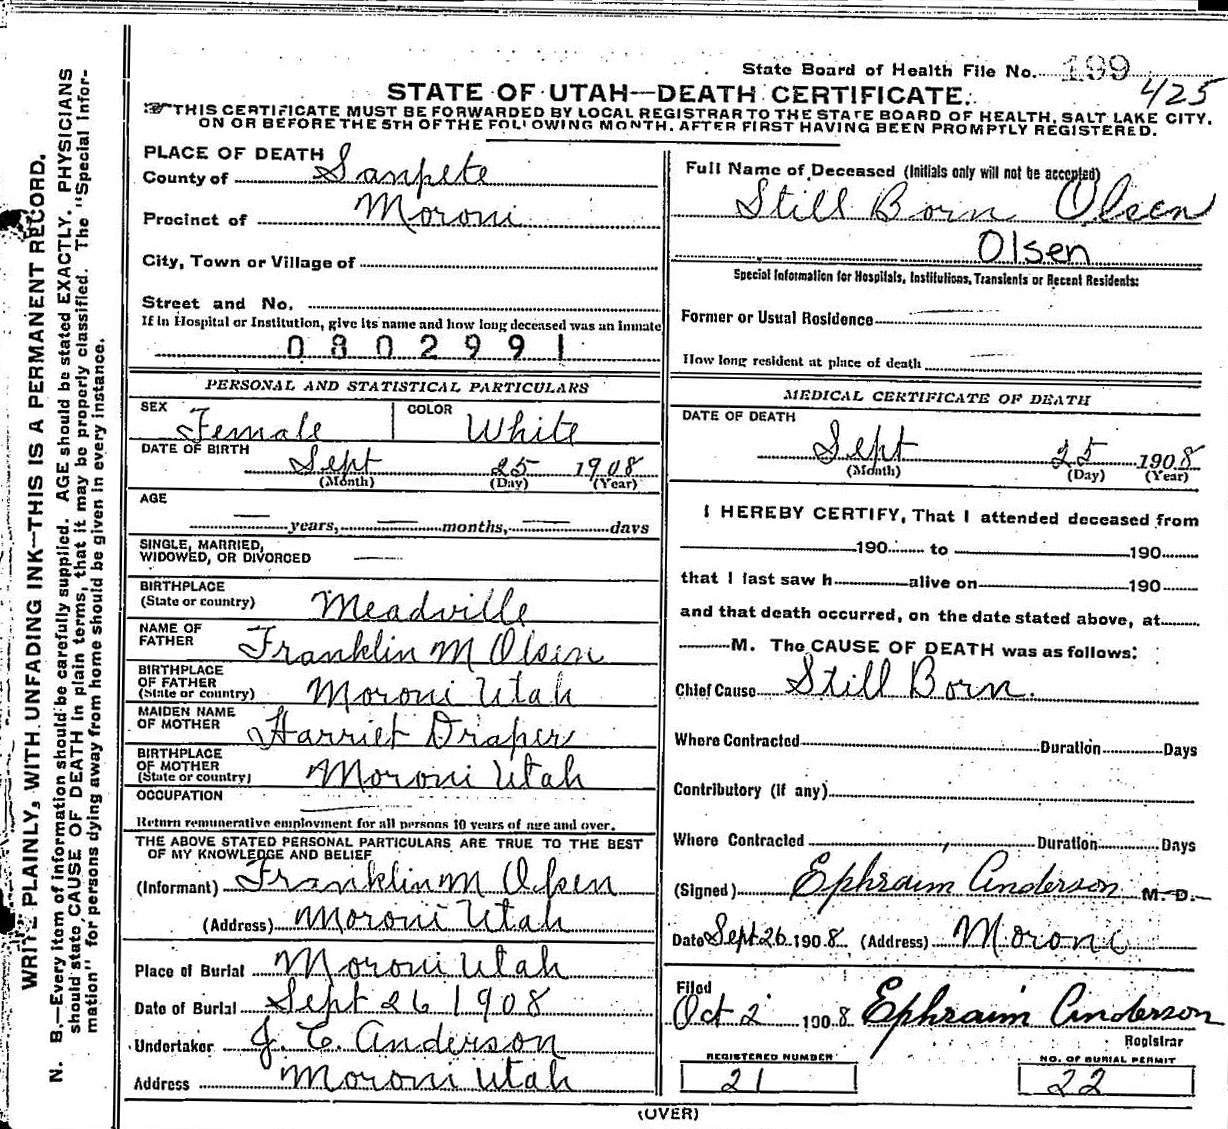 State Board of Health File No. 199
425
STATE OF UTAH—DEATH CERTIFICATE.
THIS CERTIFICATE MUST BE FORWARDED BY LOCAL REGISTRAR TO THE STATE BOARD OF HEALTH, SALT LAKE CITY,
ON OR BEFORE THE 5TH OF THE FOLLOWING MONTH, AFTER FIRST HAVING BEEN PROMPTLY REGISTERED.
WRITE PLAINLY, WITH UNFADING INK—THIS IS A PERMANENT RECORD.
N. B.—Every item of information should be carefully supplied. AGE should be stated EXACTLY. PHYSICIANS
should state CAUSE OF DEATH in plain terms, that it may be properly classified. The "Special Infor-
mation" for persons dying away from home should be given in every instance.
PLACE OF DEATH
County of Sanpete
Precinct of Moroni
City, Town or Village of
Street and No.
If in Hospital or Institution, give its name and how long deceased was an inmate
0802991
PERSONAL AND STATISTICAL PARTICULARS
SEX Female COLOR White
DATE OF BIRTH Sept 25 1908
(Month) (Day) (Year)
AGE
— years, — months, — days
SINGLE, MARRIED,
WIDOWED, OR DIVORCED —
BIRTHPLACE
(State or country) Meadville
NAME OF
FATHER Franklin M Olsen
BIRTHPLACE
OF FATHER
(State or country) Moroni Utah
MAIDEN NAME
OF MOTHER Harriet Draper
BIRTHPLACE
OF MOTHER
(State or country) Moroni Utah
OCCUPATION —
Return remunerative employment for all persons 10 years of age and over.
THE ABOVE STATED PERSONAL PARTICULARS ARE TRUE TO THE BEST
OF MY KNOWLEDGE AND BELIEF
(Informant) Franklin M Olsen
(Address) Moroni Utah
Place of Burial Moroni Utah
Date of Burial Sept 26 1908
Undertaker J. C. Anderson
Address Moroni Utah
Full Name of Deceased (Initials only will not be accepted)
Still Born Olsen
Olsen
Special Information for Hospitals, Institutions, Transients or Recent Residents:
Former or Usual Residence —
How long resident at place of death —
MEDICAL CERTIFICATE OF DEATH
DATE OF DEATH
Sept 25 1908
(Month) (Day) (Year)
I HEREBY CERTIFY, That I attended deceased from
190 to 190
that I last saw h alive on 190
and that death occurred, on the date stated above, at
M. The CAUSE OF DEATH was as follows:
Chief Cause Still Born.
Where Contracted Duration Days
Contributory (if any)
Where Contracted Duration Days
(Signed) Ephraim Anderson M. D.
Date Sept 26 1908 (Address) Moroni
Filed
Oct 2 1908 Ephraim Anderson
Registrar
REGISTERED NUMBER
21
NO. OF BURIAL PERMIT
22
(OVER)